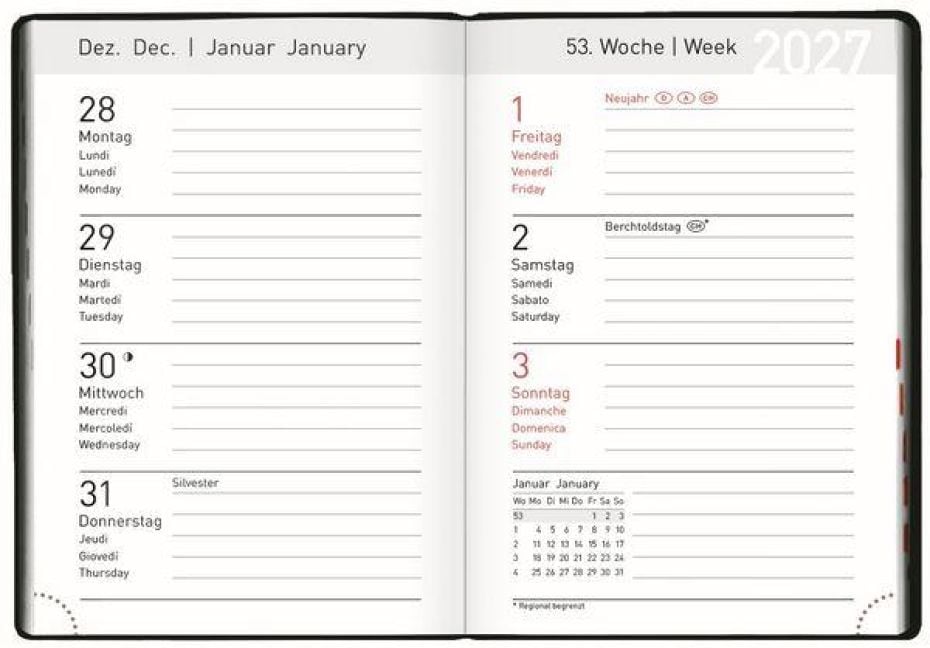 Dez. Dec. | Januar January
28
Montag
Lundi
Lunedí
Monday
29
Dienstag
Mardi
Martedí
Tuesday
30
Mittwoch
Mercredi
Mercoledí
Wednesday
31 Silvester
Donnerstag
Jeudi
Giovedí
Thursday
53. Woche | Week 2027
1 Neujahr D A CH
Freitag
Vendredi
Venerdí
Friday
2 Berchtoldstag CH*
Samstag
Samedi
Sabato
Saturday
3
Sonntag
Dimanche
Domenica
Sunday
Januar January
Wo Mo Di Mi Do Fr Sa So
53 1 2 3
1 4 5 6 7 8 9 10
2 11 12 13 14 15 16 17
3 18 19 20 21 22 23 24
4 25 26 27 28 29 30 31
* Regional begrenzt